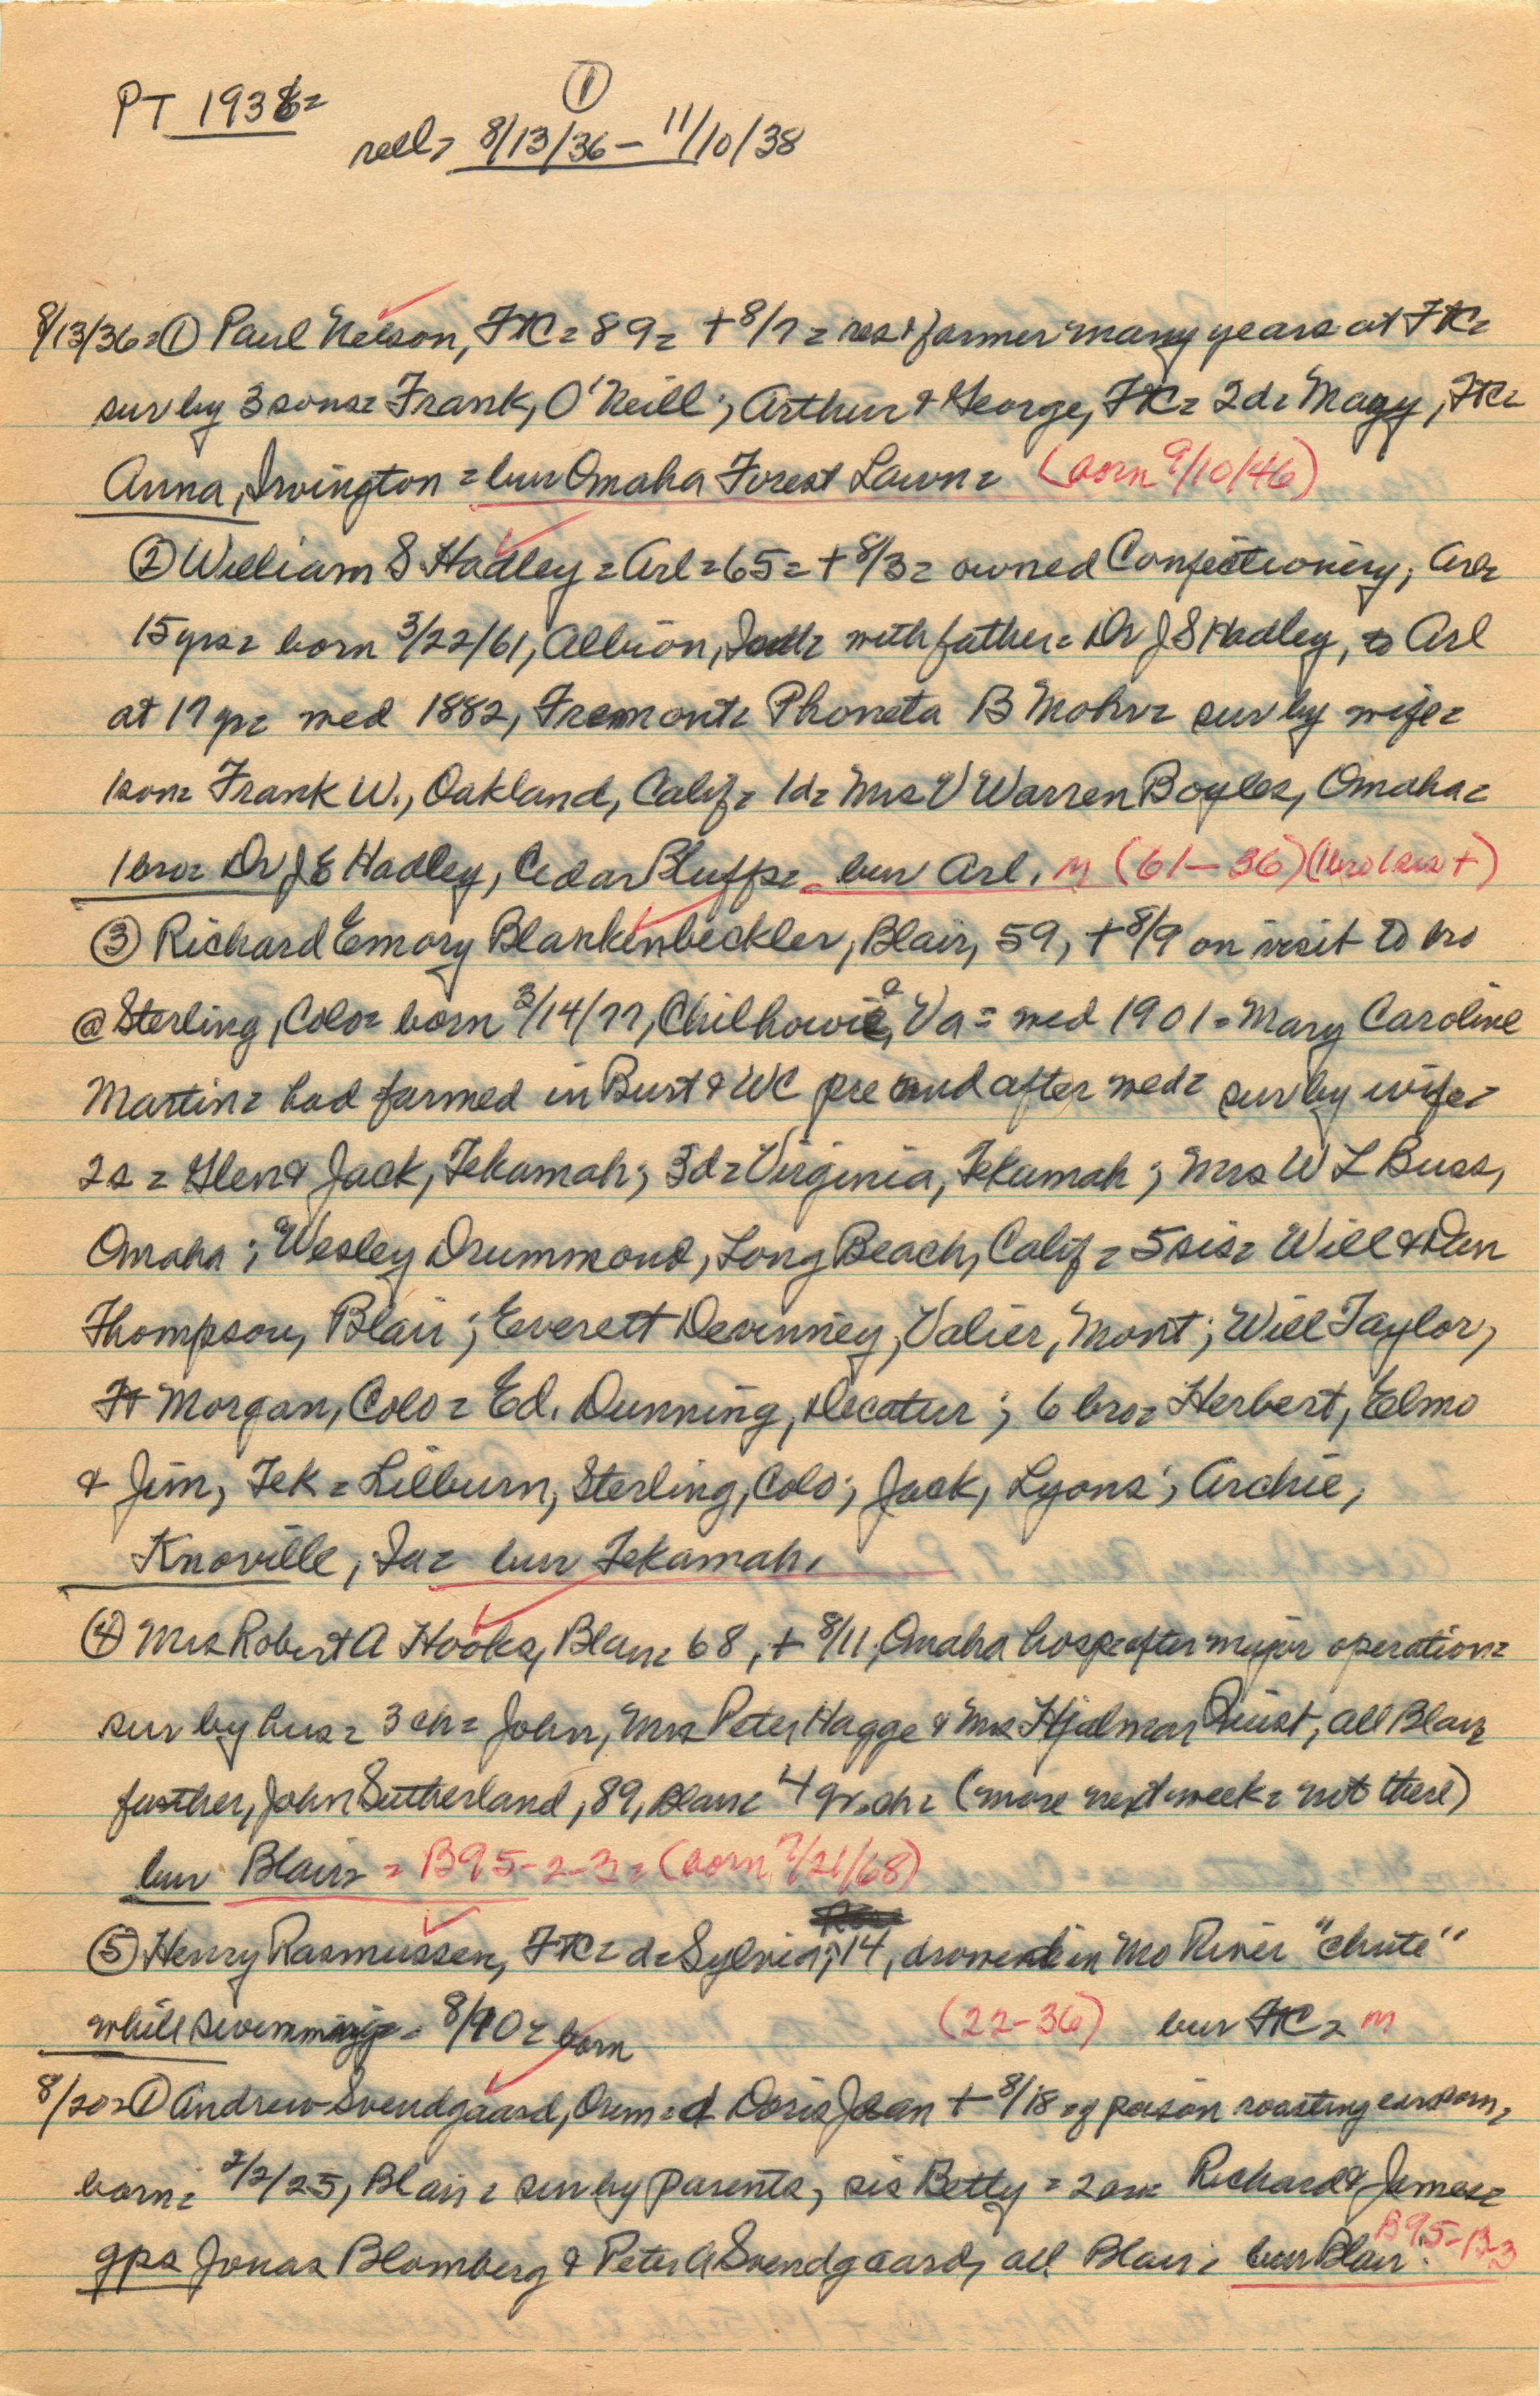 ①
PT 1936=
reel= 8/13/36 - 11/10/38
8/13/36= ① Paul Nelson, FtC= 89= +8/7= res & farmer many years at FtC=
sur by 3 sons= Frank, O'Neill; Arthur & George, FtC= 2d= Mary, FtC=
Anna, Irvington = bur Omaha Forest Lawn= (born 9/10/46)
② William S Hadley = Arl = 65 = + 8/3 = owned Confectionery, Arl=
15 yrs= born 3/22/61, Albion, Ind= with father= Dr J S Hadley, to Arl
at 17 yr= med 1882, Fremont= Phoneta B Mohr= sur by wife=
1 son= Frank W., Oakland, Calif= 1d= Mrs V Warren Boyles, Omaha=
1 bro= Dr J E Hadley, Cedar Bluffs= bur Arl. m (61-36) (1 bro 1 sis +)
③ Richard Emory Blankenbeckler, Blair, 59, + 8/9 on visit to bro
@ Sterling, Colo= born 3/14/77, Chilhowie, Va = med 1901 = Mary Caroline
Martin= had farmed in Burt & WC pre and after med= sur by wife=
2s = Glen & Jack, Tekamah; 3d= Virginia, Tekamah; Mrs W L Buss,
Omaha; Wesley Drummond, Long Beach, Calif = 5 sis= Will & Dan
Thompson, Blair; Everett Devinney, Valier, Mont; Will Taylor,
Ft Morgan, Colo = Ed. Dunning, Decatur; 6 bro= Herbert, Elmo
& Jim, Tek = Lilburn, Sterling, Colo; Jack, Lyons; Archie,
Knoville, Ia= bur Tekamah.
④ Mrs Robert A Hooks, Blair= 68, + 8/11, Omaha hosp after major operation=
sur by hus= 3 ch= John, Mrs Peter Hagge & Mrs Hjalmar Quist, all Blair
father, John Sutherland, 89, Blair= 4 gr.ch= (more next week= not there)
bur Blair= = B95-2-3= (born 7/21/68)
⑤ Henry Rasmussen, FtC= d= Sylvia, 14, drowned in Mo River "chute"
while swimming = 8/10= born (22-36) bur FtC= m
8/20= ① Andrew Svendgaard, Orum = d Doris Jean + 8/18 = of poison roasting ears corn,
born= 2/2/25, Blair = sur by parents, sis Betty = 2 bro= Richard & James=
gps Jonas Blomberg & Peter A Svendgaard, all Blair= bur Blair. B95-B-3